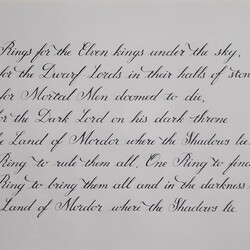 Rings for the Elven kings under the sky,
for the Dwarf Lords in their halls of ston
for Mortal Men doomed to die,
for the Dark Lord on his dark throne
e Land of Mordor where the Shadows lie
Ring to rule them all, One Ring to find
Ring to bring them all and in the darkness
Land of Mordor where the Shadows lie